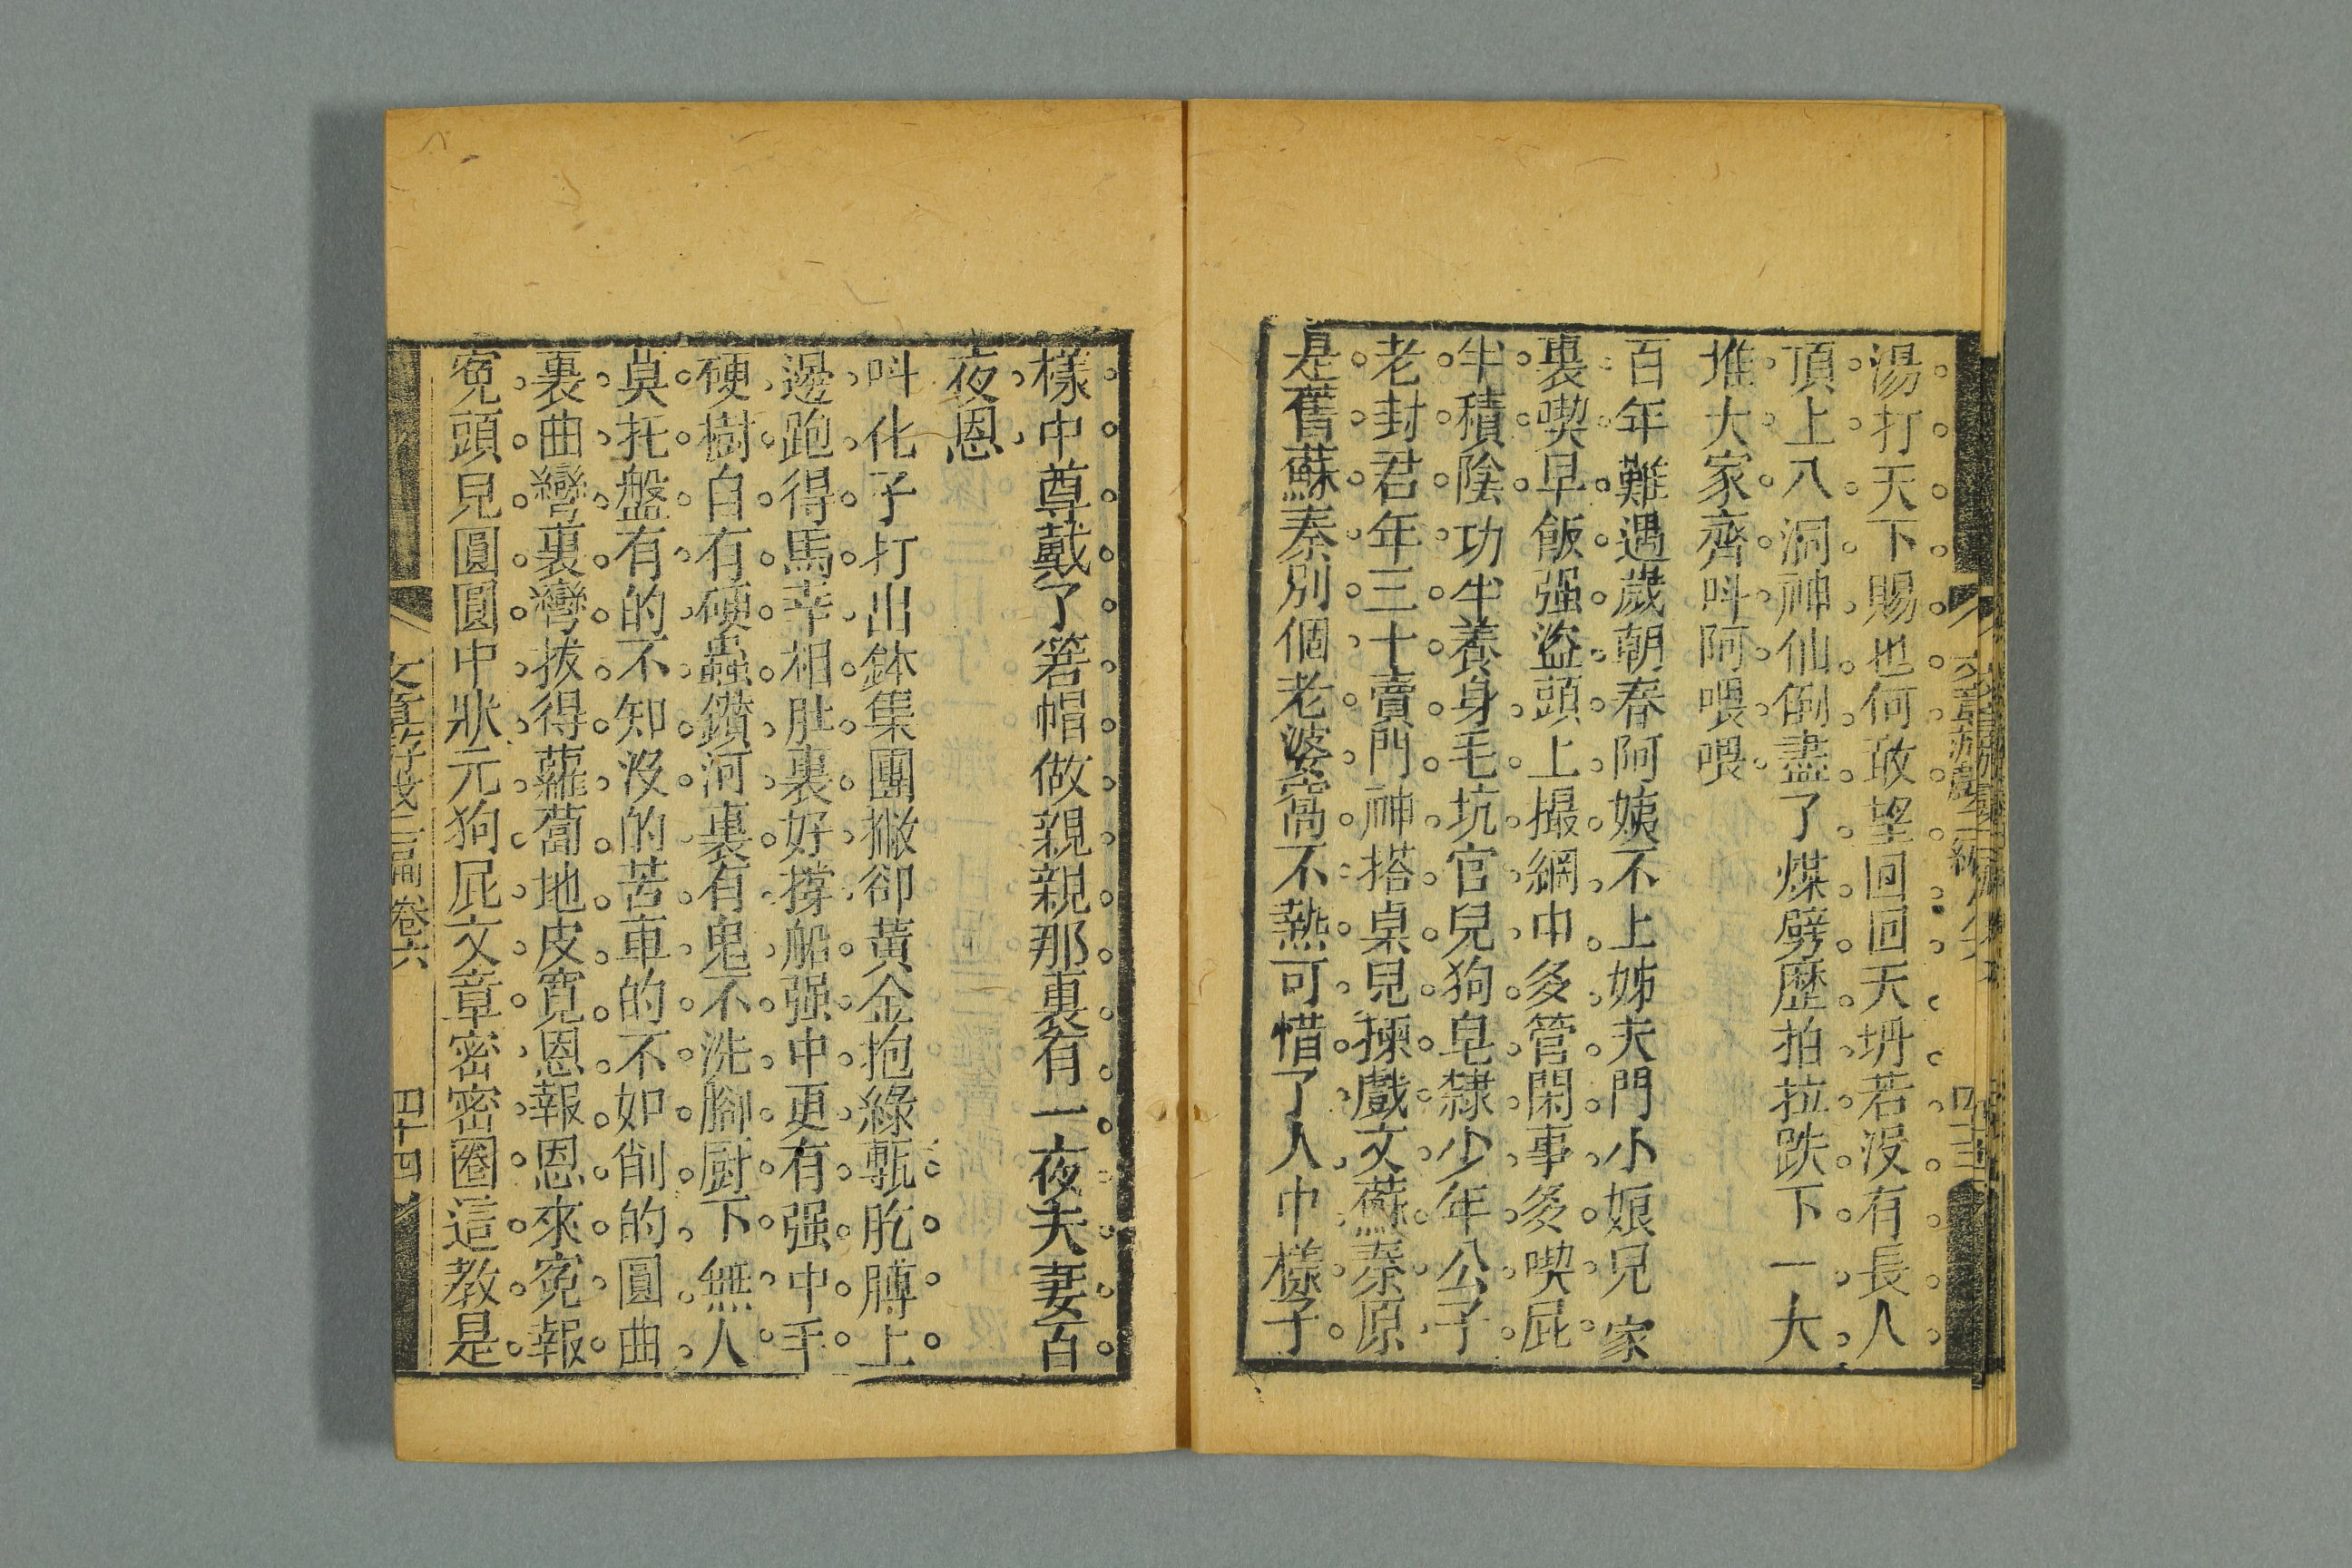 湯打天下賜也何敢望回回天坍若沒有長人
頂上八洞神仙倒盡了煤劈歷拍拉跌下一大
堆大家齊呌阿喂喂
百年難遇歲朝春阿姨不上姊夫門小娘兒家
裏喫早飯强盜頭上撮網巾多管閑事多喫屁
半積陰功半養身毛坑官兒狗皂隸少年公子
老封君年三十賣門神搭桌兒揀戲文蘇秦原
是舊蘇秦別個老婆窩不熱可惜了人中樣子
樣中尊戴了箬帽做親親那裏有一夜夫妻百
夜恩
呌化子打出鉢集團撇卻黃金抱綠甎肐膊上
邊跑得馬宰相肚裏好撐船强中更有强中手
硬樹自有硬蟲鑽河裏有鬼不洗腳厨下無人
莫托盤有的不知沒的苦車的不如削的圓曲
裏曲彎裏彎拔得蘿蔔地皮寬恩報恩來寃報
寃頭見圓圓中狀元狗屁文章密密圈這教是
文章游戲二編 卷六 四十四